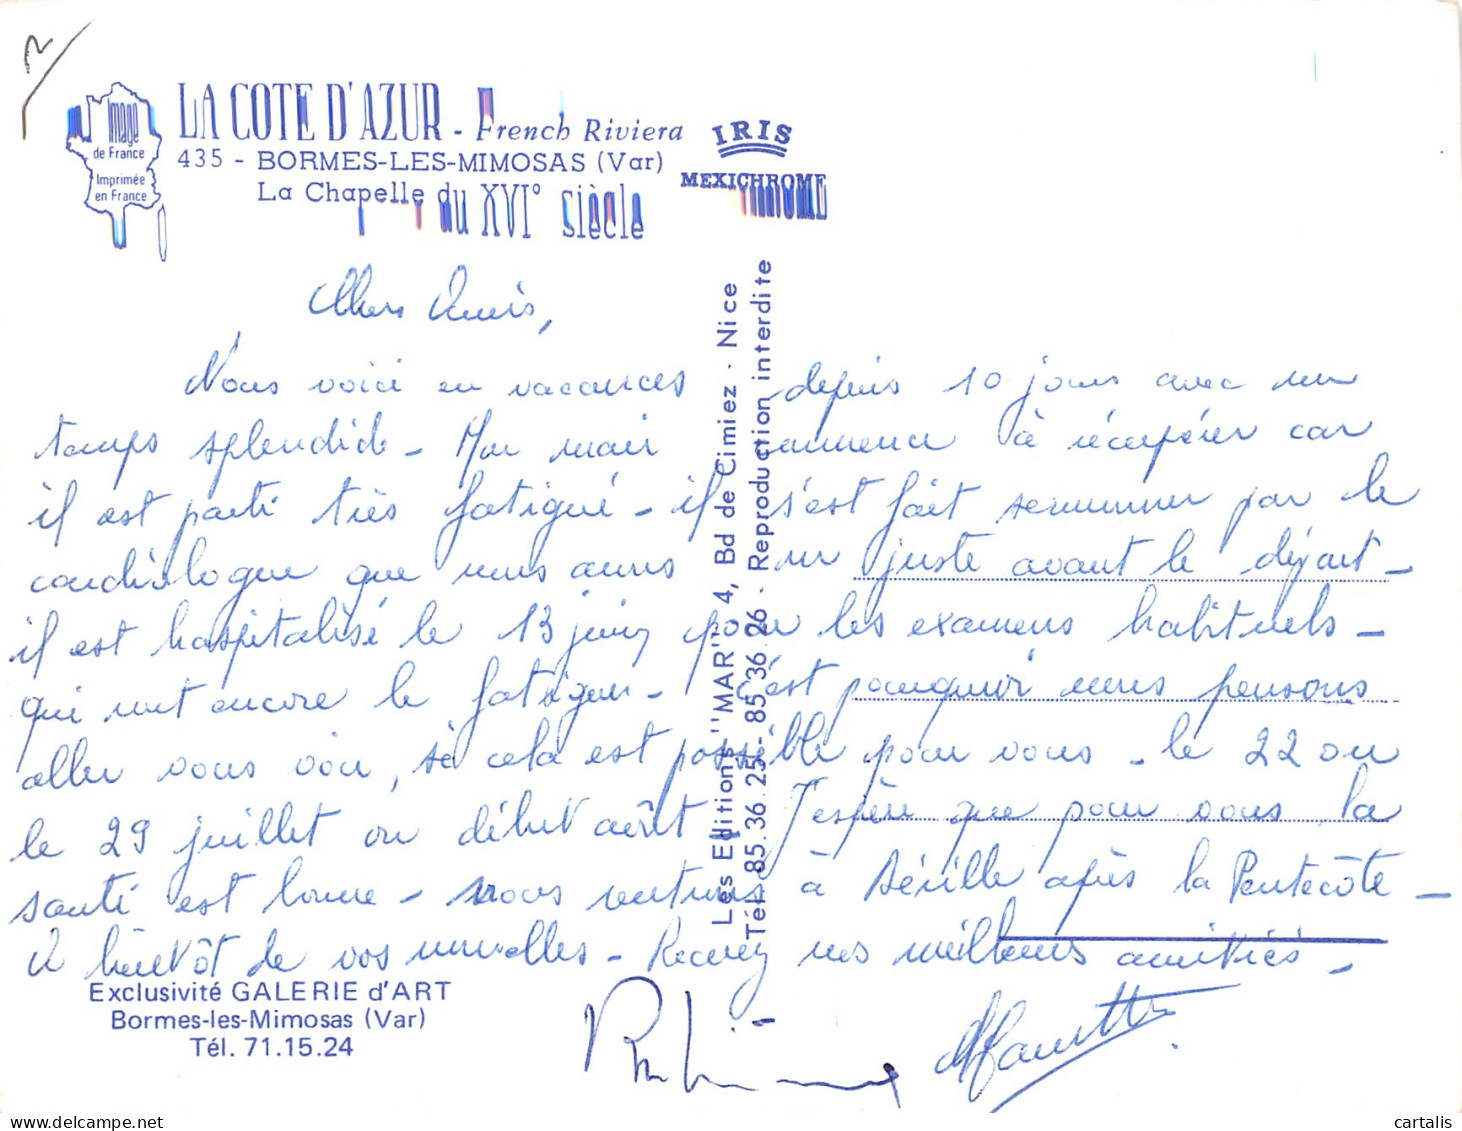 Image
de France
Imprimée
en France
LA COTE D'AZUR - French Riviera
435 - BORMES-LES-MIMOSAS (Var)
La Chapelle du XVI° siècle
IRIS
MEXICHROME
Chers Amis,
Nous voici en vacances depuis 10 jours avec un
temps splendide - Mon mari commence à récupérer car
il est parti très fatigué - il s'est fait sermonner par le
cardiologue que nous avons vu juste avant le départ -
il est hospitalisé le 13 juin pour les examens habituels -
qui vont encore le fatiguer - c'est pourquoi nous pensons
aller vous voir, si cela est possible pour vous - le 22 ou
le 29 juillet ou début août. J'espère que pour vous la
santé est bonne - nous rentrons à Séville après la Pentecôte -
A bientôt de vos nouvelles - Recevez nos meilleures amitiés -
Les Editions "MAR" - 4, Bd de Cimiez - Nice
Tél. 85.36.25 - 85.36.26 - Reproduction interdite
Exclusivité GALERIE d'ART
Bormes-les-Mimosas (Var)
Tél. 71.15.24
cartalis